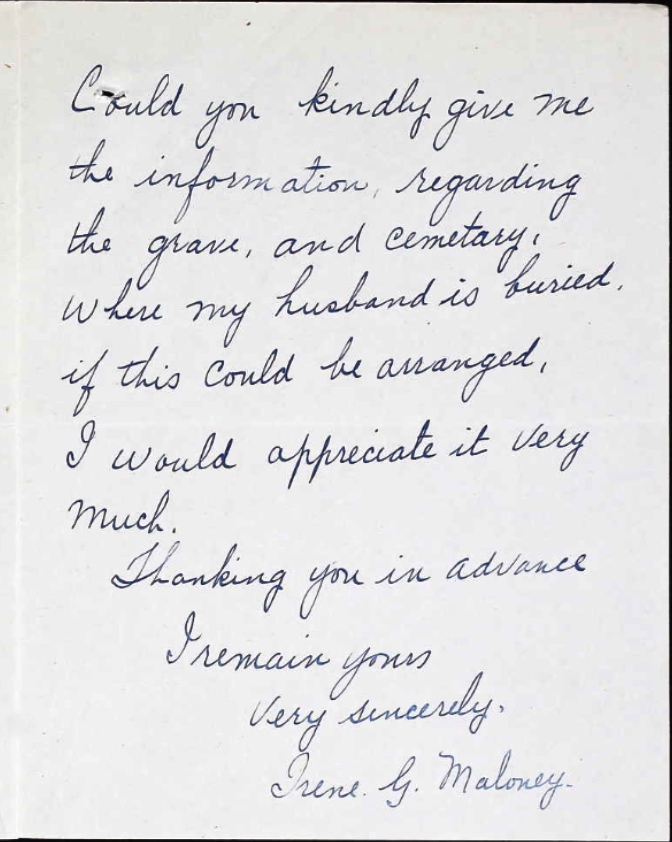 Could you kindly give me
the information, regarding
the grave, and cemetary,
where my husband is buried,
if this could be arranged,
I would appreciate it very
much.
Thanking you in advance
I remain yours
Very sincerely,
Irene. G. Maloney.